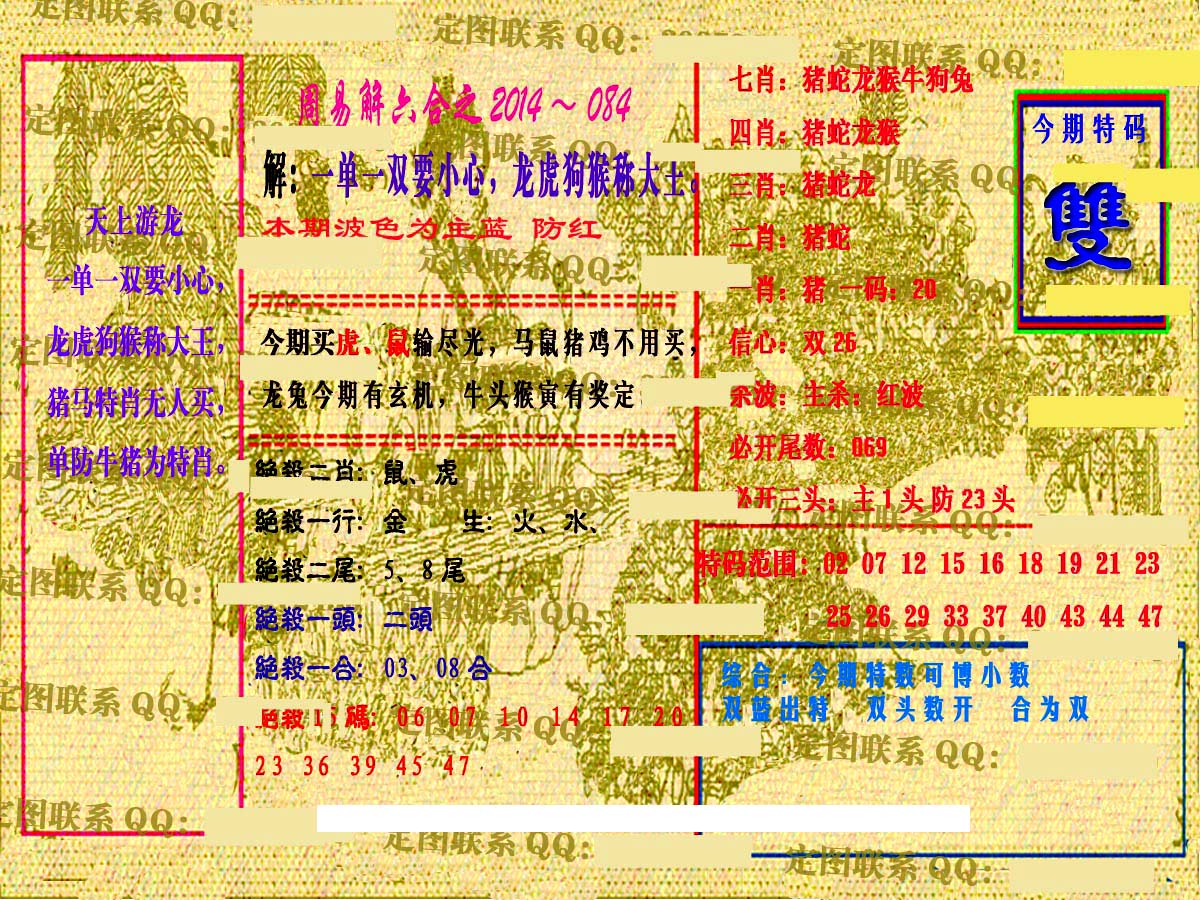 周易解六合之2014～084
天上游龙
一单一双要小心，
龙虎狗猴称大王，
猪马特肖无人买，
单防牛猪为特肖。
解：一单一双要小心，龙虎狗猴称大王。
本期波色为主蓝 防红
今期买虎、鼠输尽光，马鼠猪鸡不用买，
龙兔今期有玄机，牛头猴寅有奖定
絕殺二肖：鼠、虎
絕殺一行：金 生：火、水、
絕殺二尾：5、8尾
絕殺一頭：二頭
絕殺一合：03、08合
碼：06 07 10 14 17 20
23 36 39 45 47
七肖：猪蛇龙猴牛狗兔
四肖：猪蛇龙猴
三肖：猪蛇龙
二肖：猪蛇
一肖：猪 一码：20
信心：双26
杀波：主杀：红波
必开尾数：069
必开三头：主1头防23头
今期特码
雙
特码范围：02 07 12 15 16 18 19 21 23
25 26 29 33 37 40 43 44 47
综合：今期特数可博小数
双蓝出特 双头数开 合为双
定图联系QQ：
定图联系QQ：
定图联系QQ：
定图联系QQ：
定图联系QQ：
定图联系QQ：
定图联系QQ：
定图联系QQ：